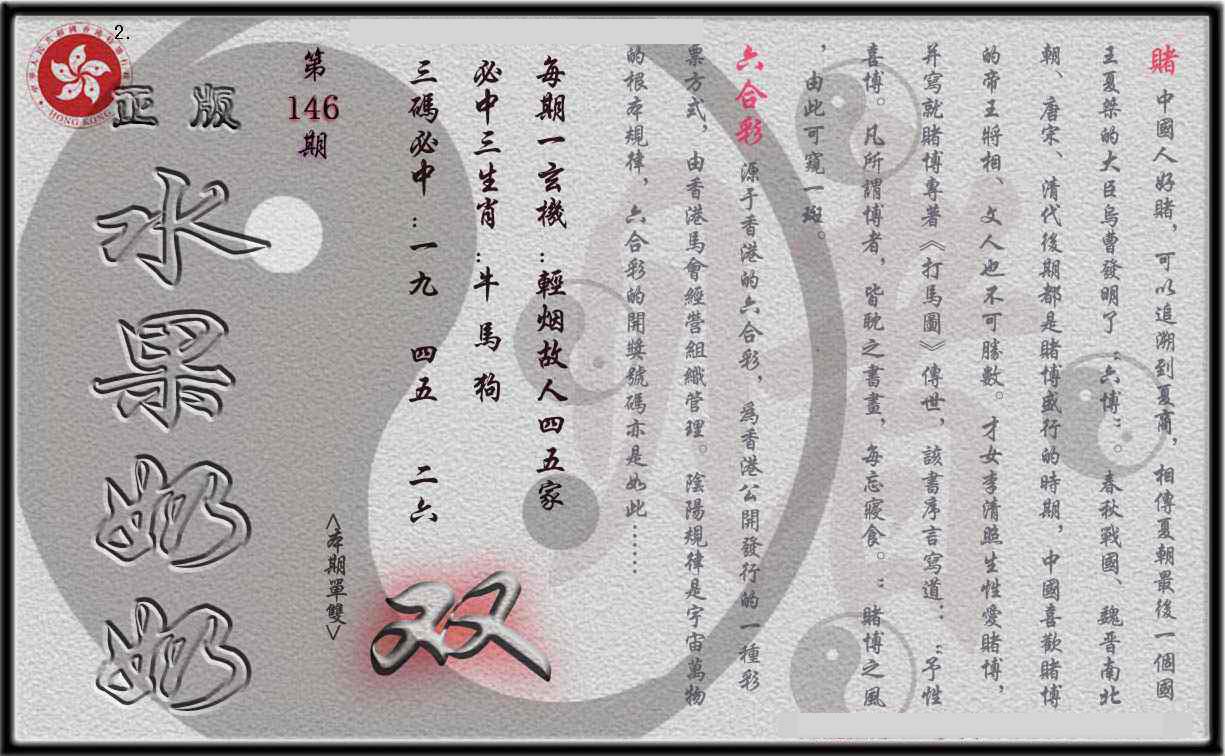 賭 中國人好賭，可以追溯到夏商，相傳夏朝最後一個國
王夏桀的大臣烏曹發明了“六博”。春秋戰國、魏晋南北
朝、唐宋、清代後期都是賭博盛行的時期，中國喜歡賭博
的帝王將相、文人也不可勝數。才女李清照生性愛賭博，
并寫就賭博專著《打馬圖》傳世，該書序言寫道：“予性
喜博。凡所謂博者，皆耽之書晝，每忘寢食。”賭博之風
，由此可窺一斑。
六合彩 源于香港的六合彩，爲香港公開發行的一種彩
票方式，由香港馬會經營組織管理。陰陽規律是宇宙萬物
的根本規律，六合彩的開獎號碼亦是如此……
每期一玄機：輕烟故人四五家
必中三生肖：牛 馬 狗
三碼必中：一九 四五 二六
<本期單雙>
双
第
146
期
2.
正版
水果奶奶
HONG KONG